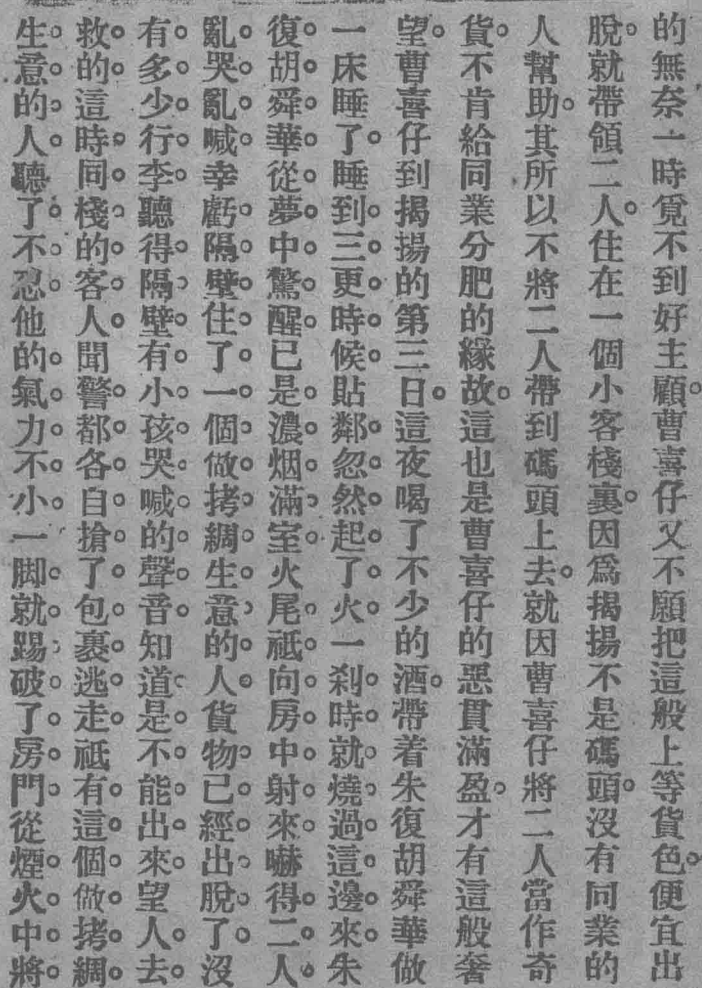 的無奈一時覓不到好主顧。曹喜仔又不願把這般上等貨色。便宜出
脫。就帶領二人。住在一個小客棧裏。因爲揭揚不是碼頭。沒有同業的
人幫助。其所以不將二人帶到碼頭上去。就因曹喜仔將二人當作奇
貨。不肯給同業分肥的緣故。這也是曹喜仔的惡貫滿盈。才有這般奢
望。曹喜仔到揭揚的第三日。這夜喝了不少的酒。帶着朱復胡舜華做
一床睡了。睡到。三。更。時。候。貼鄰。忽。然。起。了。火。一剎。時。就。燒。過。這。邊。來。朱
復。胡。舜。華。從。夢。中。驚。醒。已。是。濃。烟。滿。室。火尾。祗。向。房。中。射。來。嚇得。二。人。
亂。哭。亂。喊。幸虧。隔。壁。住。了。一。個。做。拷。綢。生。意。的。人。貨物。已。經。出。脫。了。沒
有。多。少。行。李。聽得。隔。壁。有。小。孩。哭。喊。的。聲。音。知道。是。不。能。出。來。望人。去。
救。的。這時。同。棧。的。客。人。聞警。都。各。自。搶。了。包。裹。逃。走。祗有。這。個。做。拷。綢。
生。意。的。人。聽。了。不。忍。他的。氣。力。不。小。一脚。就。踢。破。了。房。門。從煙。火。中。將。